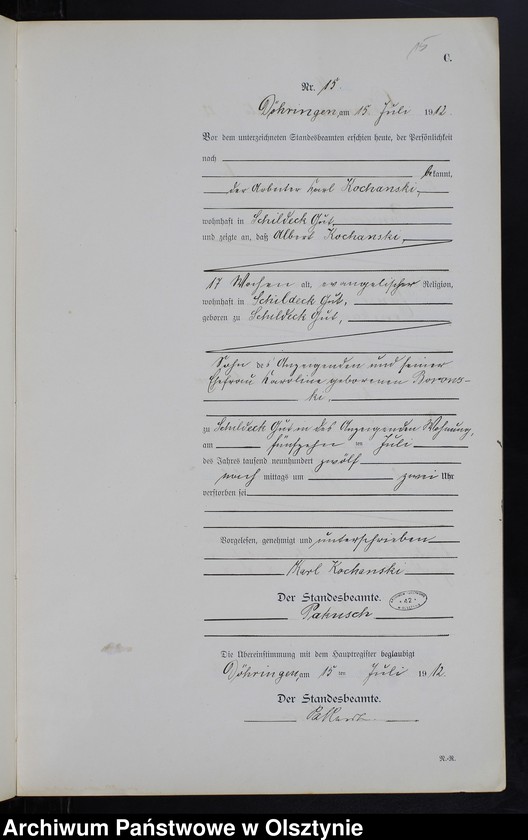 15
C.
Nr. 15.
Döhringen, am 15. Juli 1912.
Vor dem unterzeichneten Standesbeamten erschien heute, der Persönlichkeit
nach
bekannt,
der Arbeiter Karl Kochanski,
wohnhaft in Schildeck Gut,
und zeigte an, daß Albert Kochanski,
17 Wochen alt, evangelischer Religion,
wohnhaft in Schildeck Gut,
geboren zu Schildeck Gut,
Sohn des Anzeigenden und seiner
Ehefrau Karoline geborenen Borows-
ki,
zu Schildeck Gut in des Anzeigenden Wohnung,
am fünfzehn ten Juli
des Jahres tausend neunhundert zwölf
nach mittags um zwei Uhr
verstorben sei
Vorgelesen, genehmigt und unterschrieben
Karl Kochanski
Der Standesbeamte.
Die Übereinstimmung mit dem Hauptregister beglaubigt
Döhringen, am 15 ten Juli 1912.
Der Standesbeamte.
N.-R.
Archiwum Państwowe w Olsztynie